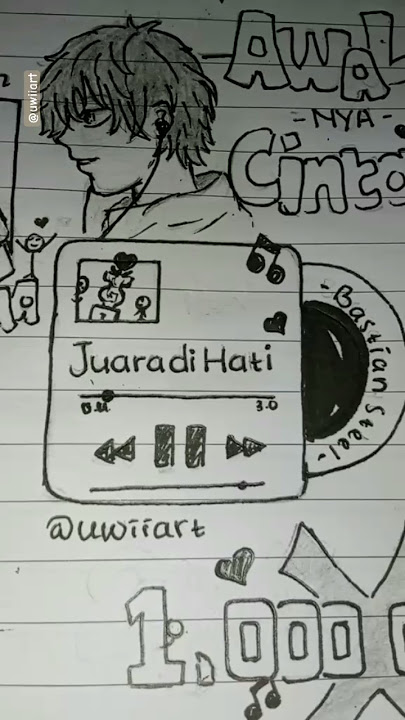 @uwiiart
AwaL
-NYA-
Cinta
Juara di Hati
3.0
-Bastian Steel-
@uwiiart
1.000